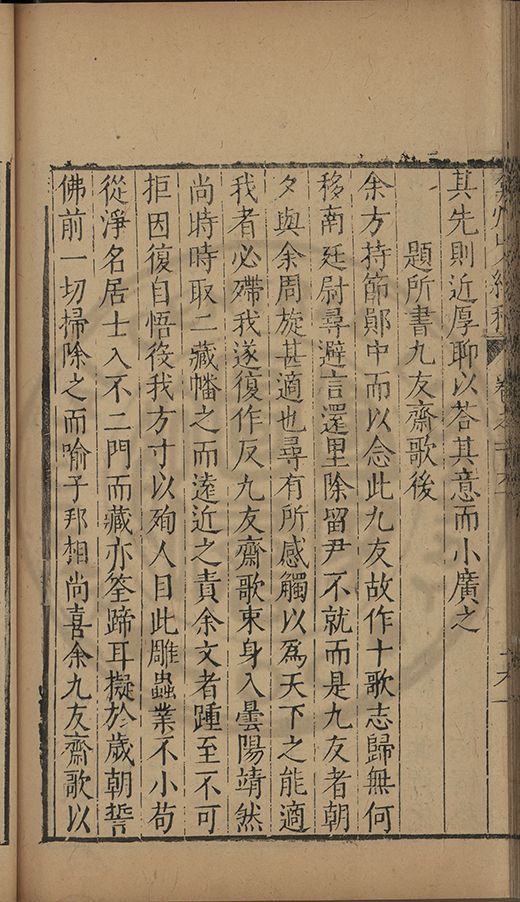 其先則近厚聊以荅其意而小廣之
題所書九友齋歌後
余方持節鄖中而以念此九友故作十歌志歸無何
移南廷尉尋避言還里除留尹不就而是九友者朝
夕與余周旋甚適也尋有所感觸以爲天下之能適
我者必殢我遂復作反九友齋歌束身入曇陽靖然
尚時時取二藏幡之而遠近之責余文者踵至不可
拒因復自悟役我方寸以殉人目此雕蟲業不小苟
從淨名居士入不二門而藏亦筌蹄耳擬於歲朝誓
佛前一切掃除之而喻子邦相尚喜余九友齋歌以